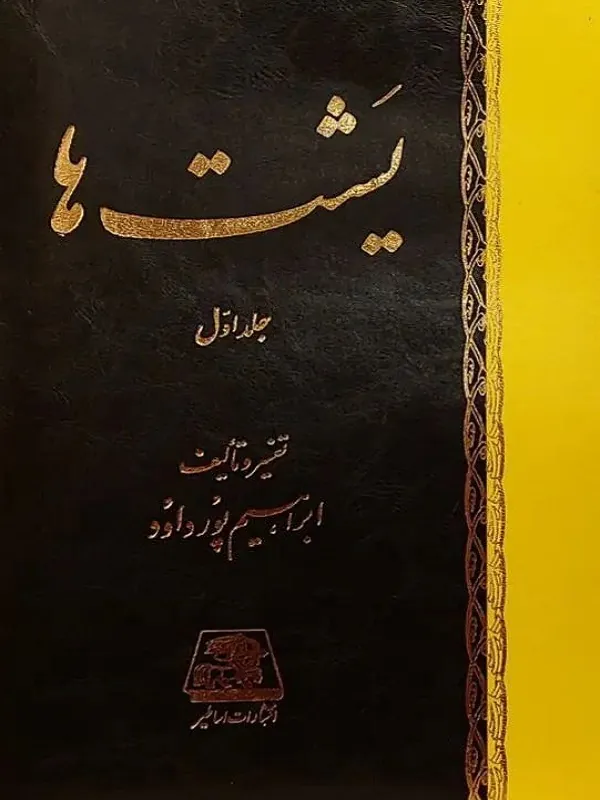 یَشت ها
جلد اوّل
تفسیر و تألیف
ابراهیم پورداوُد
انتشارات اساطیر